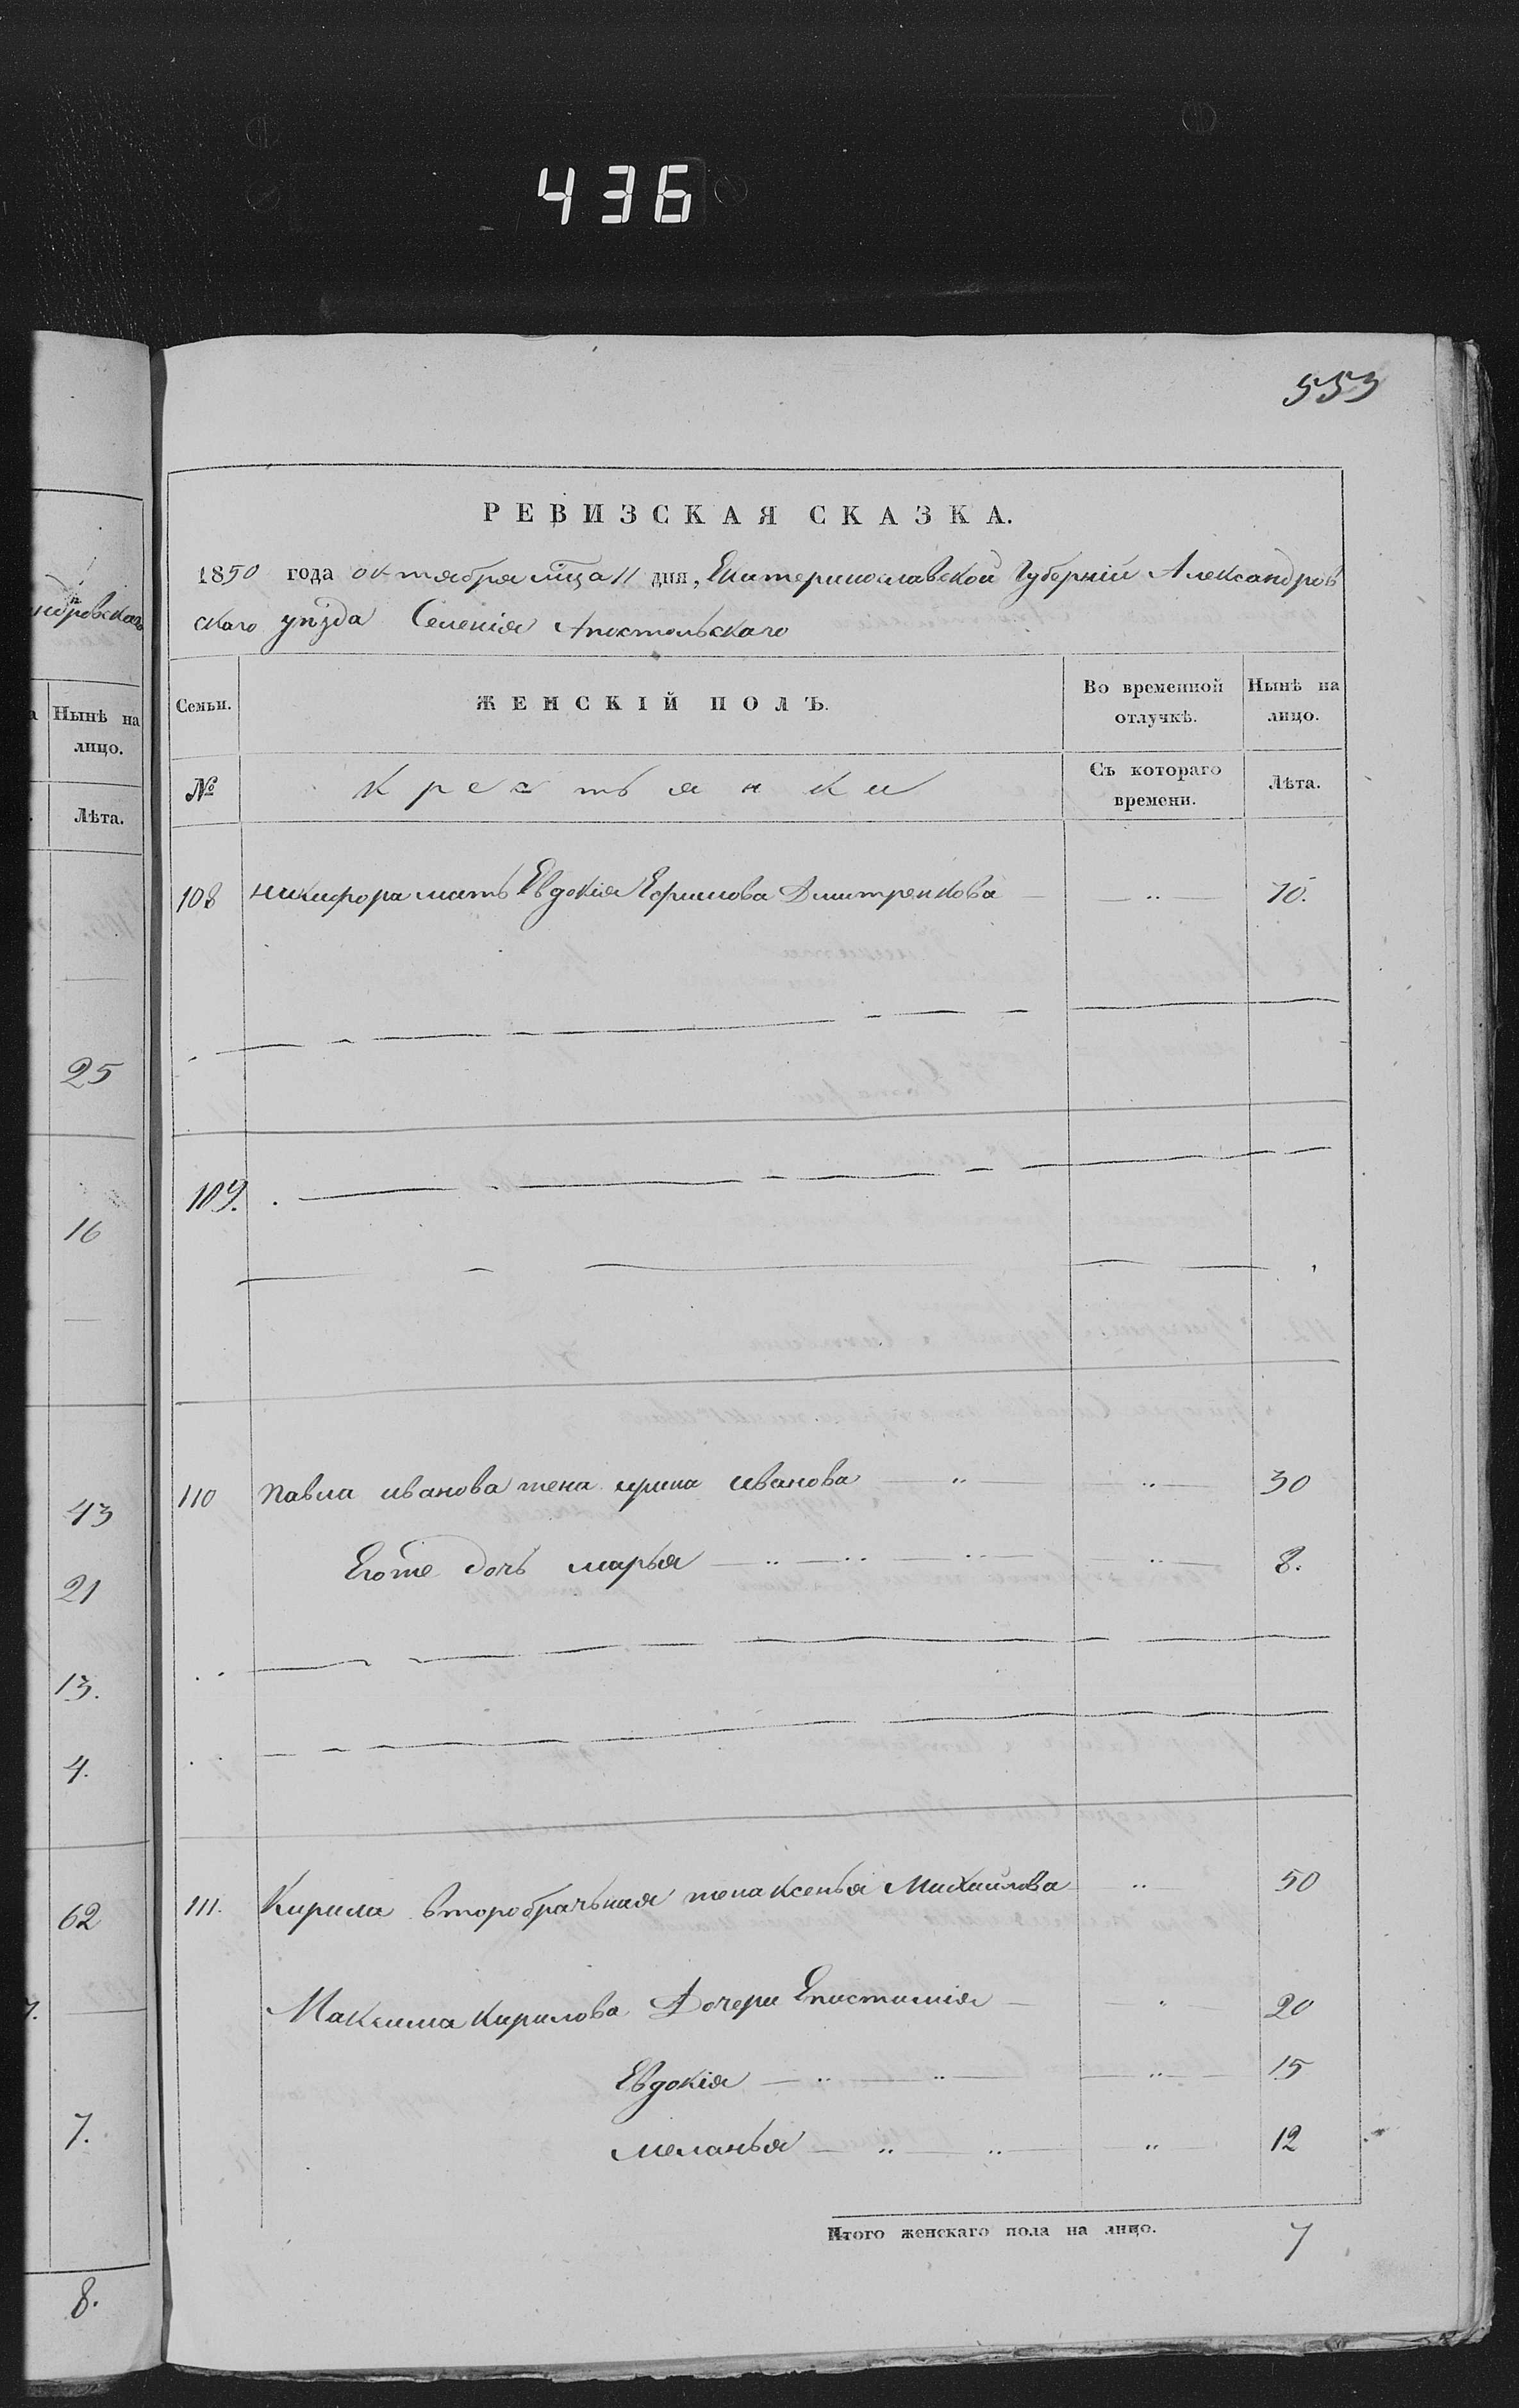 436
553
РЕВИЗСКАЯ СКАЗКА.
1850 года октября мца 11 дня, Екатеринославской Губерніи Александров
скаго уѣзда Селенія Апостольскаго
ндровскаго
Нынѣ на
лицо.
Лѣта.
25
16
43
21
13.
4.
62
7.
8.
Семьи.
ЖЕНСКІЙ ПОЛЪ.
Во временной
отлучкѣ.
Нынѣ на
лицо.
№
Крестьянки
Съ котораго
времени.
Лѣта.
108 никифора мать Евдокія Ефимова Дмитренкова — „ — 70.
109.
110 Павла иванова жена ирина иванова — „ — „ — 30
Егоже дочь марья — „ — „ — „ — „ — 8.
111. Кирила второбрачьная жена Ксенья Михайлова — „ — 50
Максима Кирилова Дочери Епистимія — „ — 20
Евдокія — „ — „ — „ — 15
меланья — „ — „ — „ 12
Итого женскаго пола на лицо. 7